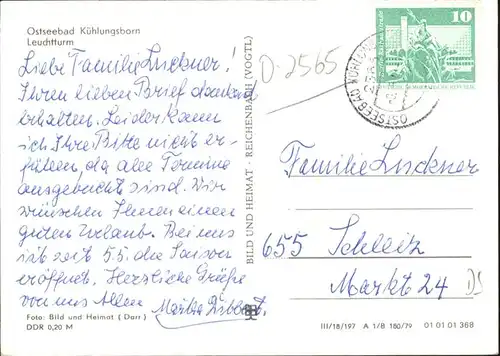 Ostseebad Kühlungsborn
Leuchtturm
Liebe Familie Luckner!
Ihren lieben Brief dankend
erhalten. Leider kann
ich Ihre Bitte nicht er-
füllen, da alle Termine
ausgebucht sind. Wir
wünschen Ihnen einen
guten Urlaub. Bei uns
ist seit 5.5. die Saison
eröffnet. Herzliche Grüße
von uns Allen
Foto: Bild und Heimat (Darr)
DDR 0,20 M
BILD UND HEIMAT · REICHENBACH (VOGTL)
D-2565
10
DEUTSCHE DEMOKRATISCHE REPUBLIK
OSTSEEBAD KÜHLUNGSBORN
Familie Luckner
655 Schleiz
Markt 24
DS
III/18/197 A 1/B 180/79 01 01 01 368